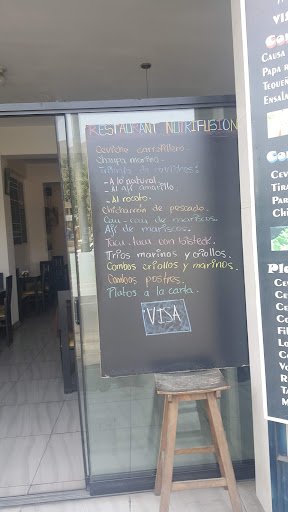 RESTAURANT NUTRIFUSION
Ceviche carretillero.
Chaupa marino.
Trilogía de ceviches:
- A lo natural.
- Al ají amarillo.
- Al rocoto.
Chicharrón de pescado.
Cau-cau de mariscos.
Ají de mariscos.
Tacu-tacu con bisteck.
Tríos marinos y criollos.
Combos criollos y marinos.
Combos postres.
Platos a la carta.
VISA
VIS
Causa
Papa
Tequeñ
Ensala
Cev
Tira
Par
Chi
Ple
Ce
Ce
Ce
Ce
Co
Fil
Lo
Co
Vo
R
Ta
M